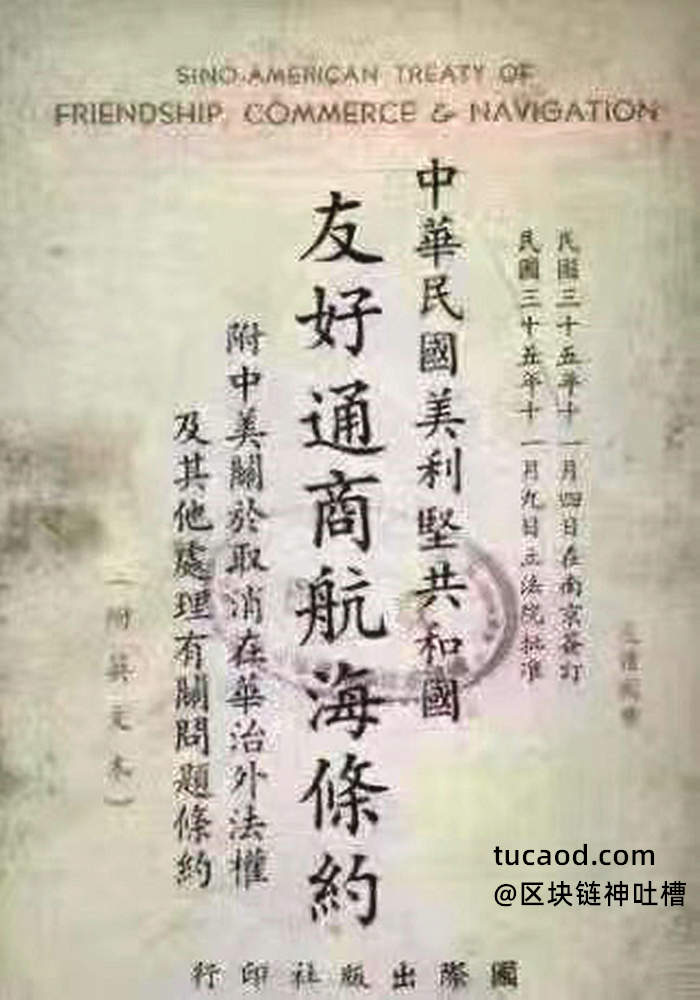 SINO-AMERICAN TREATY OF
FRIENDSHIP, COMMERCE & NAVIGATION
民國三十五年十一月四日在南京簽訂
民國三十五年十一月九日立法院批准
中華民國美利堅共和國
友好通商航海條約
附中美關於取消在華治外法權
及其他處理有關問題條約
（附英文本）
國際出版社印行
tucaod.com
@区块链神吐槽